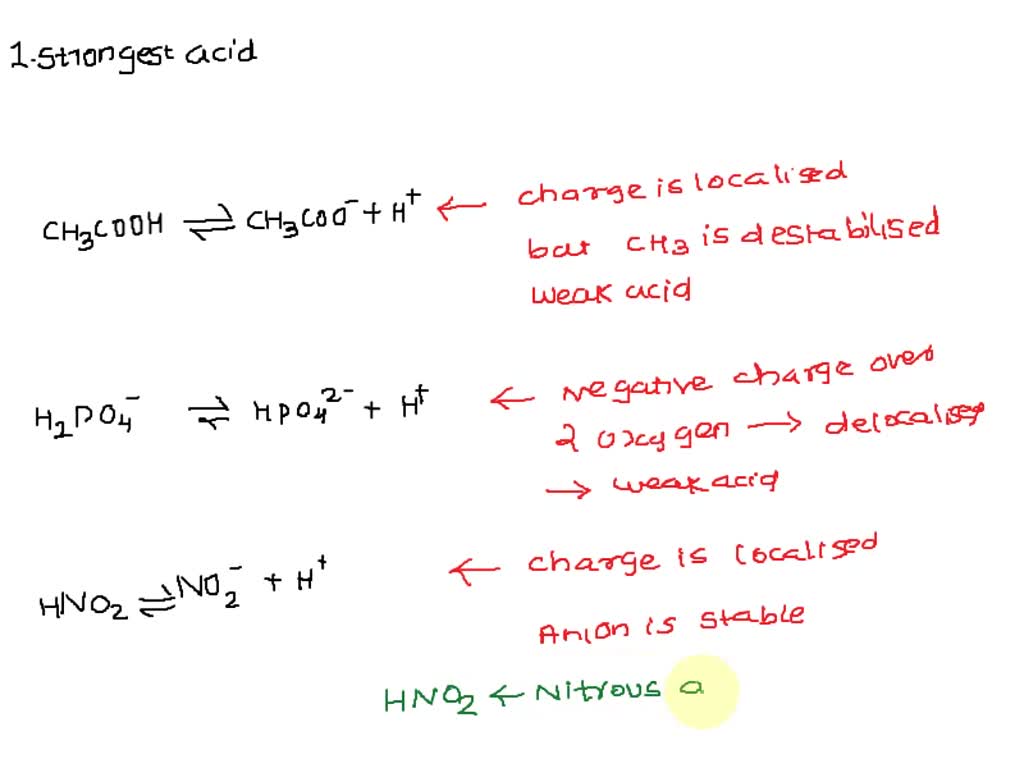 1.strongest acid
CH₃COOH ⇌ CH₃COO⁻ + H⁺ ← charge is localised
but CH₃ is destabilised
weak acid
H₂PO₄⁻ ⇌ HPO₄²⁻ + H⁺ ← negative charge over
2 oxygen → delocalised
→ weak acid
HNO₂ ⇌ NO₂⁻ + H⁺ ← charge is localised
Anion is stable
HNO₂ ← Nitrous a